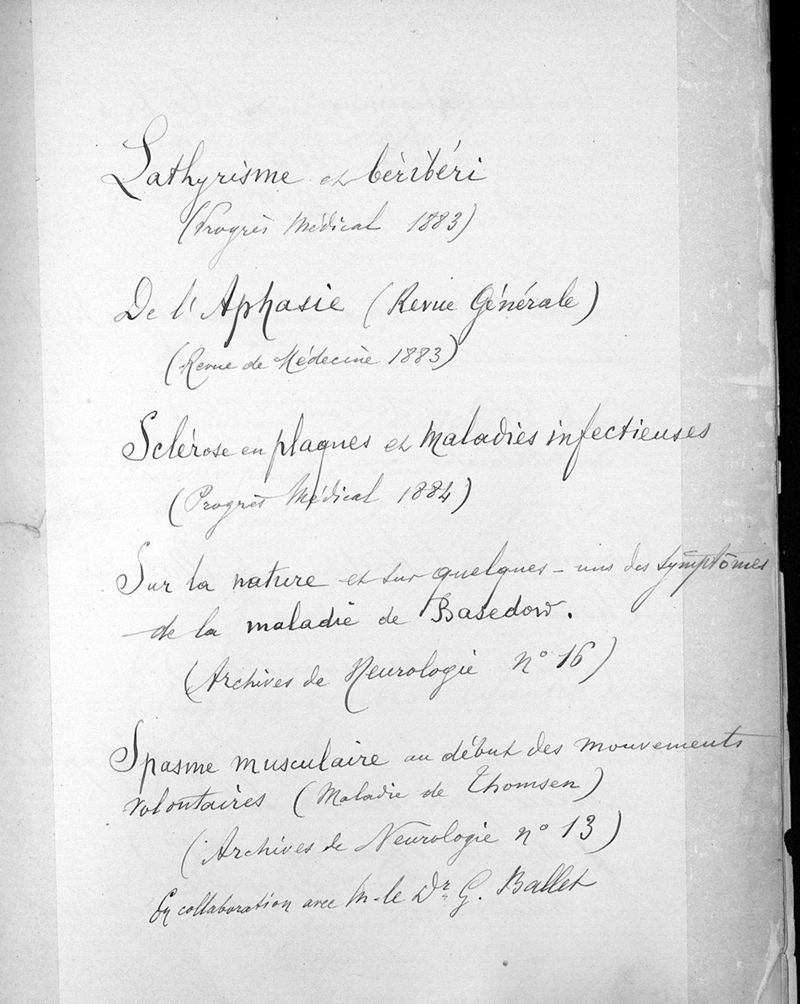 Lathyrisme et béribéri
(Progrès Médical 1883)
De l'Aphasie (Revue Générale)
(Revue de Médecine 1883)
Sclérose en plaques et Maladies infectieuses
(Progrès Médical 1884)
Sur la nature et sur quelques-uns des symptômes
de la maladie de Basedow.
(Archives de Neurologie n° 16)
Spasme musculaire au début des mouvements
volontaires (Maladie de Thomsen)
(Archives de Neurologie n° 13)
En collaboration avec M-le Dr G. Ballet